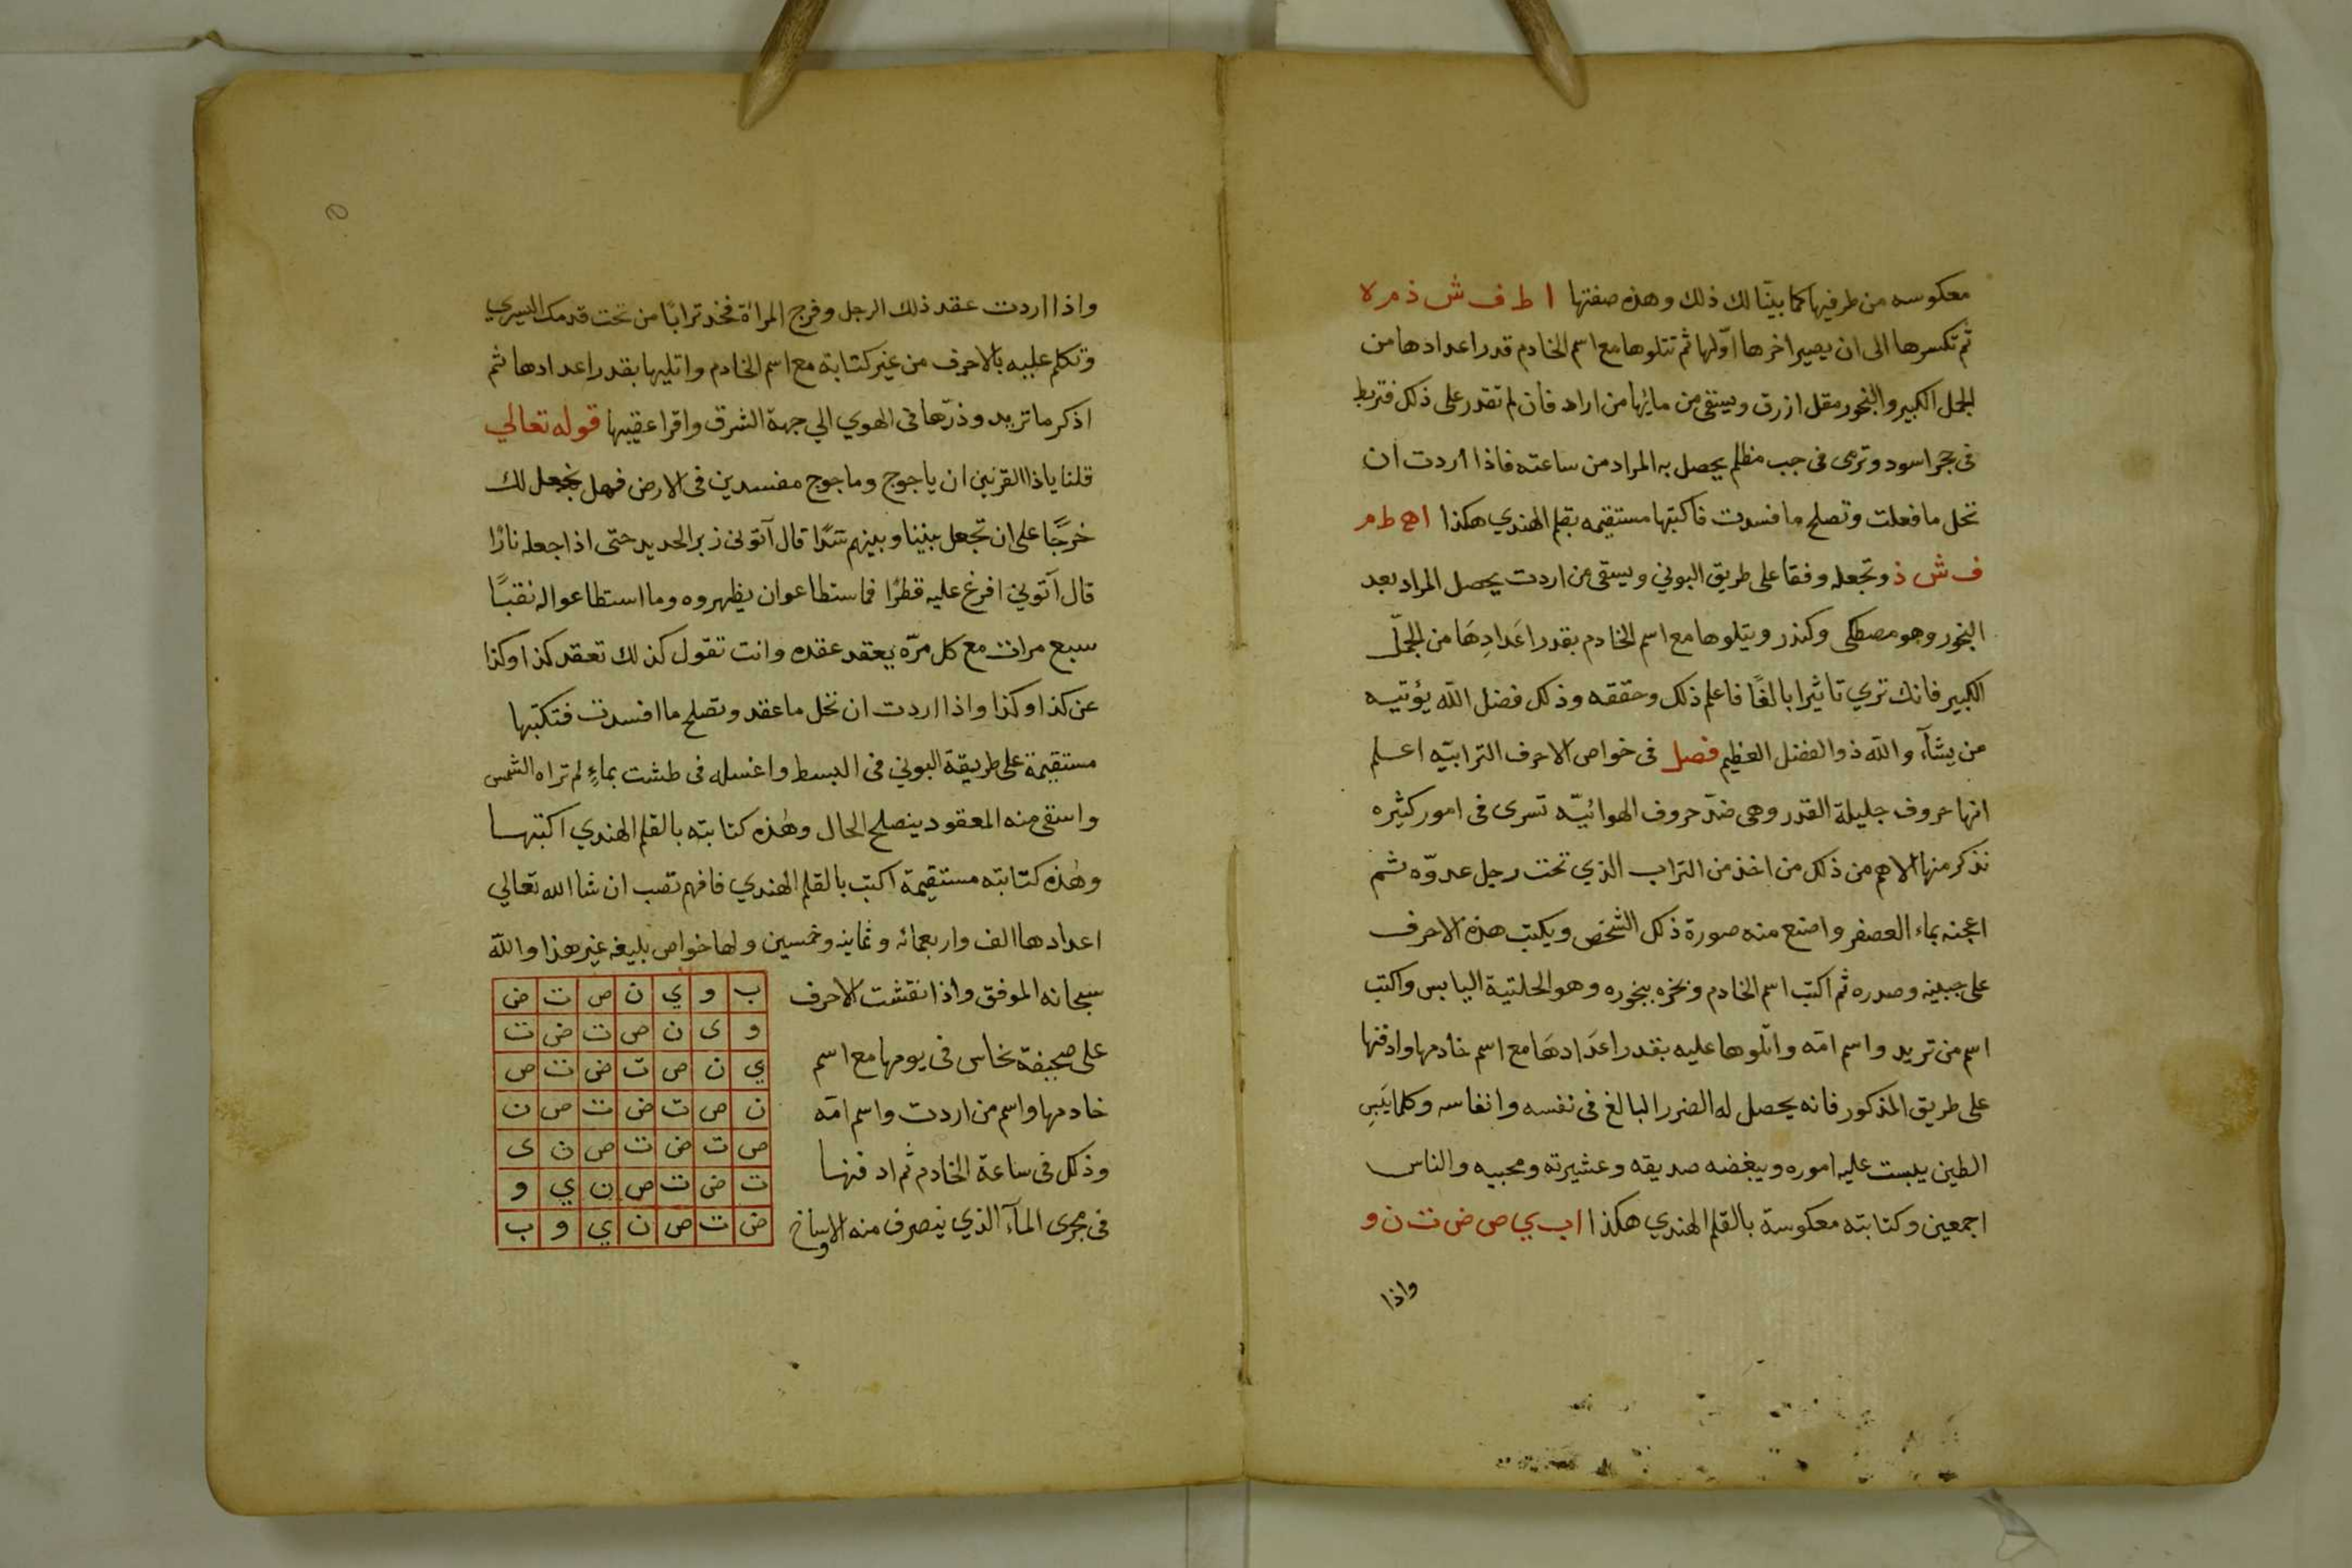 معكوسه من طرفيها كما بينّا لك ذلك وهذه صفتها ا ط ف ش ذ م ه
ثم تكسرها الى ان يصير اخرها اوّلها ثم تتلوها مع اسم الخادم قدر اعدادها من
الجمل الكبير والبخور مقل ازرق ويسقى من مائها من اراد فان لم تقدر على ذلك فتربط
فى حجر اسود وترمى فى جب مظلم يحصل به المراد من ساعته فاذا اردت ان
تحل ما فعلت وتصلح ما فسدت فاكتبها مستقيمه بقلم الهندي هكذا ا ه ط م
ف ش ذ وتجعله وفقا على طريق البوني ويسقى من اردت يحصل المراد بعد
البخور وهو مصطكى وكندر ويتلوها مع اسم الخادم بقدر اعَدادِهَا من الجمّل
الكبير فانك تري تاثيرا بالغًا فاعلم ذلك وحققه وذلك فضل الله يؤتيه
من يشآء والله ذو الفضل العظيم فصل فى خواص الاحرف الترابيّه اعلم
انها حروف جليلة القدر وهى ضدّ حروف الهوائيّه تسرى فى امور كثيره
نذكر منها الاهم من ذلك من اخذ من التراب الذي تحت رجل عدوّه ثم
اعجنه بماء العصفر واصنع منه صورة ذلك الشخص ويكتب هذه الاحرف
على جبينه وصدره ثم اكتب اسم الخادم وبخره ببخوره وهو الحلتية اليابس واكتب
اسم من تريد واسم امّه واتلوها عليه بقدر اعَدَادهَا مع اسم خادمها وادفنها
على طريق المذكور فانه يحصل له الضرر البالغ فى نفسه وانفاسه وكلما يَبِس
الطين يبست عليه اموره ويبغضه صديقه وعشيرته ومحبيه والناس
اجمعين وكتابته معكوسة بالقلم الهندي هكذا ا ب ي ص ض ت ن و
واذا
واذا اردت عقد ذلك الرجل وفرج المراة فخذ ترابًا من تحت قدمك اليسري
وتكلم عليه بالاحرف من غير كتابة مع اسم الخادم واتليها بقدر اعدادها ثم
اذكر ما تريد وذرّها فى الهوي الي جهة الشرق واقرا عقيبها قوله تعالي
قلنا ياذا القرنين ان ياجوج وماجوج مفسدين فى الارض فهل نجعل لك
خرجًا على ان تجعل بيننا وبينهم سَدًّا قال آتونى زبر الحديد حتى اذا جعله نارًا
قال آتوني افرغ عليه قطرًا فما سنطاعوا ان يظهروه وما استطاعوا له نقبًا
سبع مرات مع كل مرّه يعقد عقده وانت تقول كذلك تعقد كذا وكذا
عن كذا وكذا واذا اردت ان تحل ما عقد وتصلح ما افسدت فتكتبها
مستقيمة على طريقة البوني فى البسط واغسله فى طشت بماءٍ لم تراه الشمس
واسقى منه المعقود ينصلح الحال وهٰذه كتابته بالقلم الهندي اكتبها
وهٰذه كتابته مستقيمة اكتب بالقلم الهندي فافهم تصب ان شا الله تعالي
اعدادها الف واربعمائه وثمانيه وخمسين ولها خواص بليغه غير هذا والله
سبحانه الموفق واذا نقشت الاحرف
على صحيفة نحاس فى يومها مع اسم
خادمها واسم من اردت واسم امّه
وذلك فى ساعة الخادم ثم ادفنها
فى مجرى المآء الذي ينصرف منه الاوساخ
ب و ي ن ص ت ض
و ى ن ص ت ض ت
ي ن ص ت ض ت ص
ن ص ت ض ت ص ن
ص ت ض ت ص ن ى
ت ض ت ص ن ي و
ض ت ص ن ي و ب